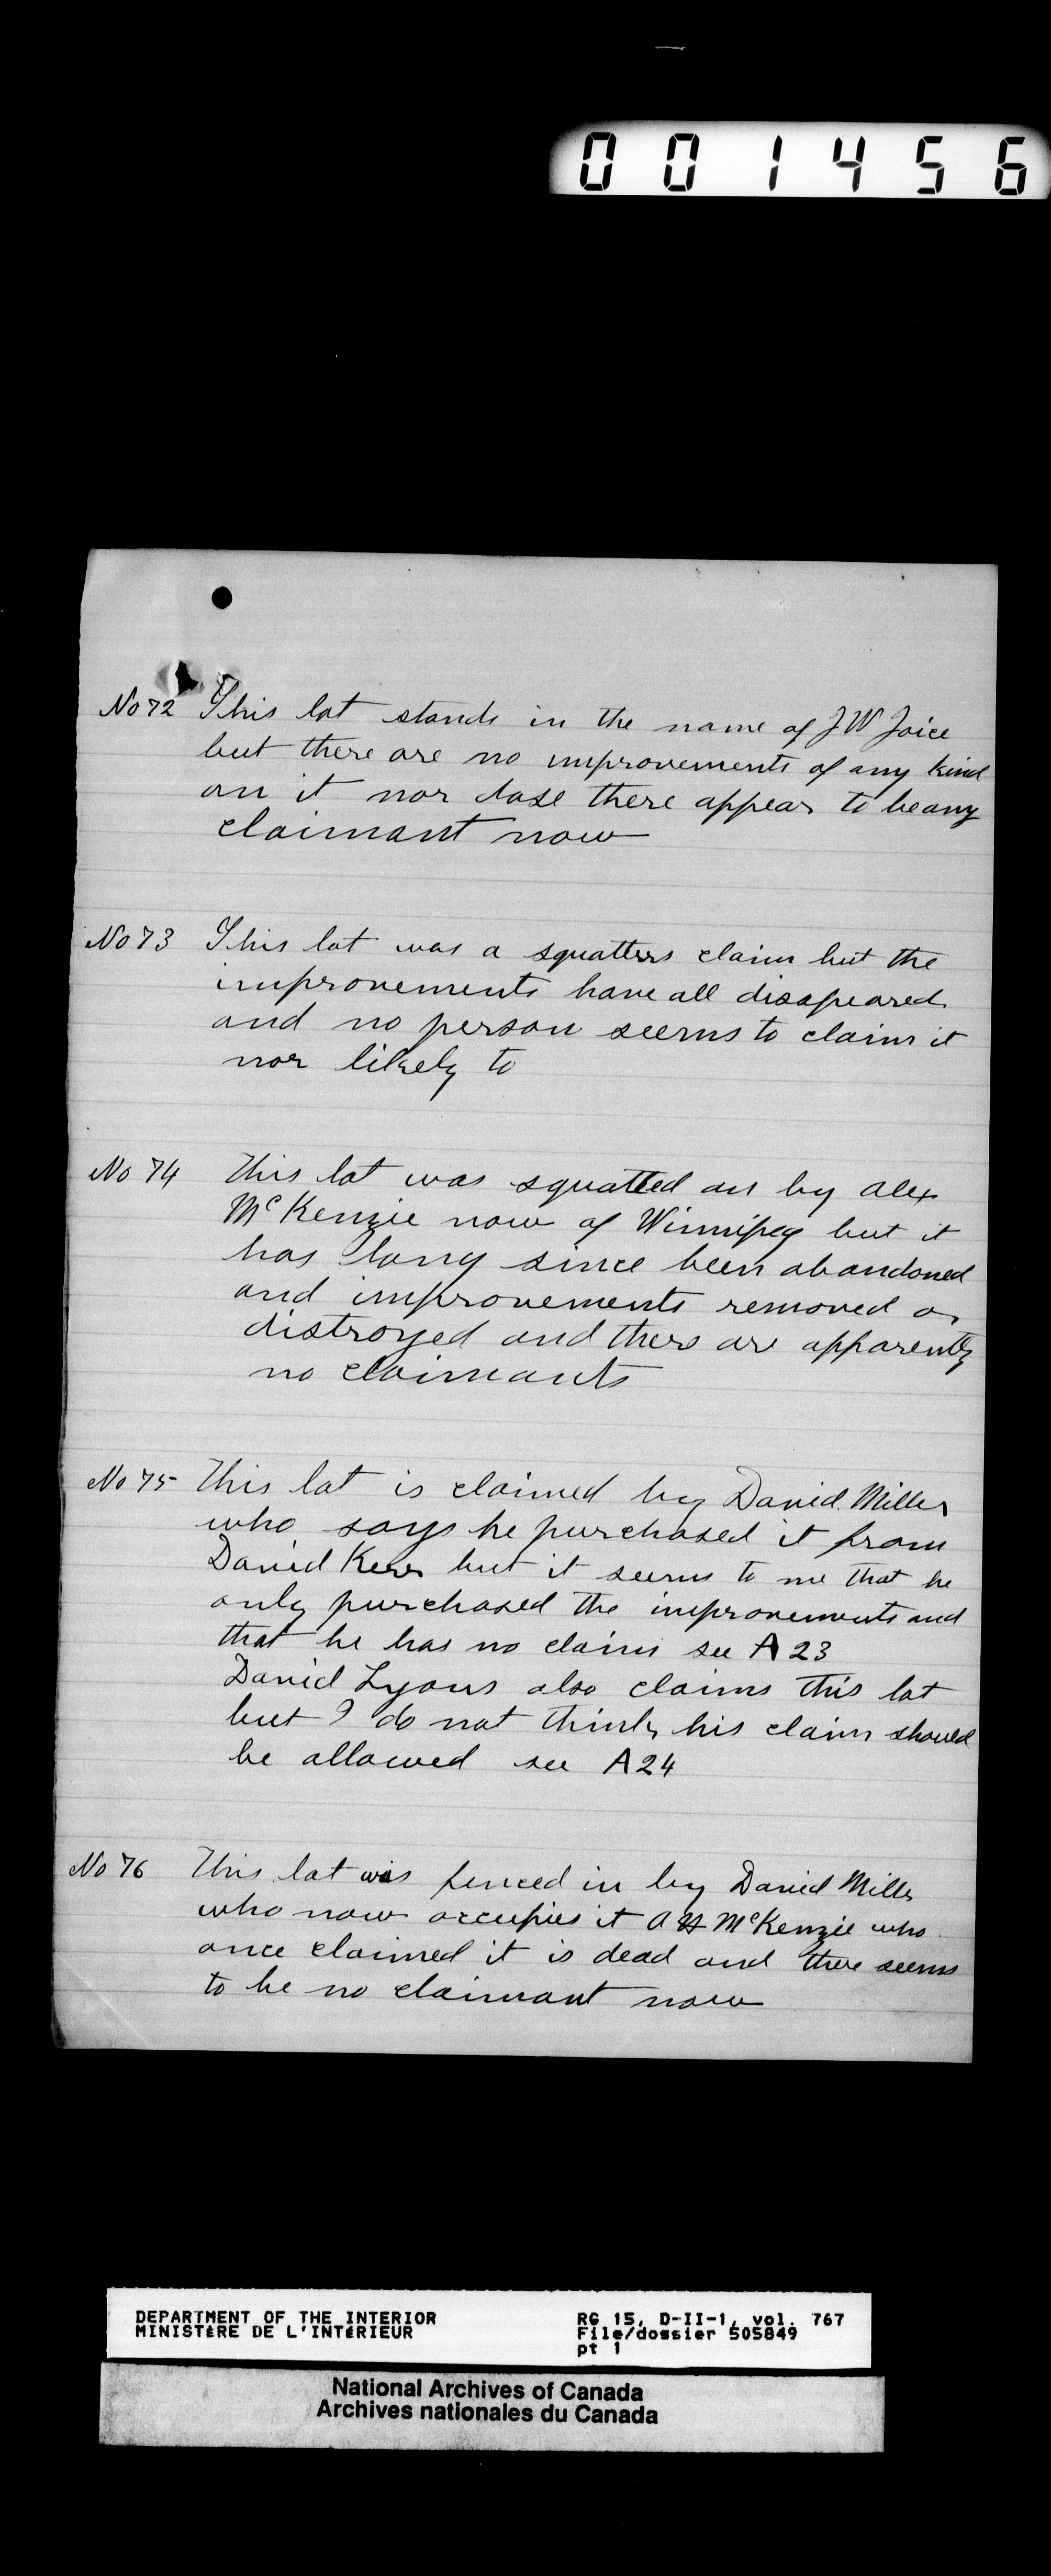 001456
No 72 This lot stands in the name of J W Joice
but there are no improvements of any kind
on it nor dose there appear to be any
claimant now
No 73 This lot was a squatters claim but the
improvements have all disapeared
and no person seems to claim it
nor likely to
No 74 This lot was squatted on by Alex
McKenzie now of Winnipeg but it
has long since been abandoned
and improvements removed or
distroyed and there are apparently
no claimants
No 75 This lot is claimed by David Miller
who says he purchased it from
David Kerr but it seems to me that he
only purchased the improvements and
that he has no claim see A 23
David Lyons also claims this lot
but I do not think his claim should
be allowed see A 24
No 76 This lot was fenced in by David Miller
who now occupies it A H McKenzie who
once claimed it is dead and there seems
to be no claimant now
DEPARTMENT OF THE INTERIOR RG 15, D-II-1, vol. 767
MINISTÈRE DE L'INTÉRIEUR File/dossier 505849
pt 1
National Archives of Canada
Archives nationales du Canada